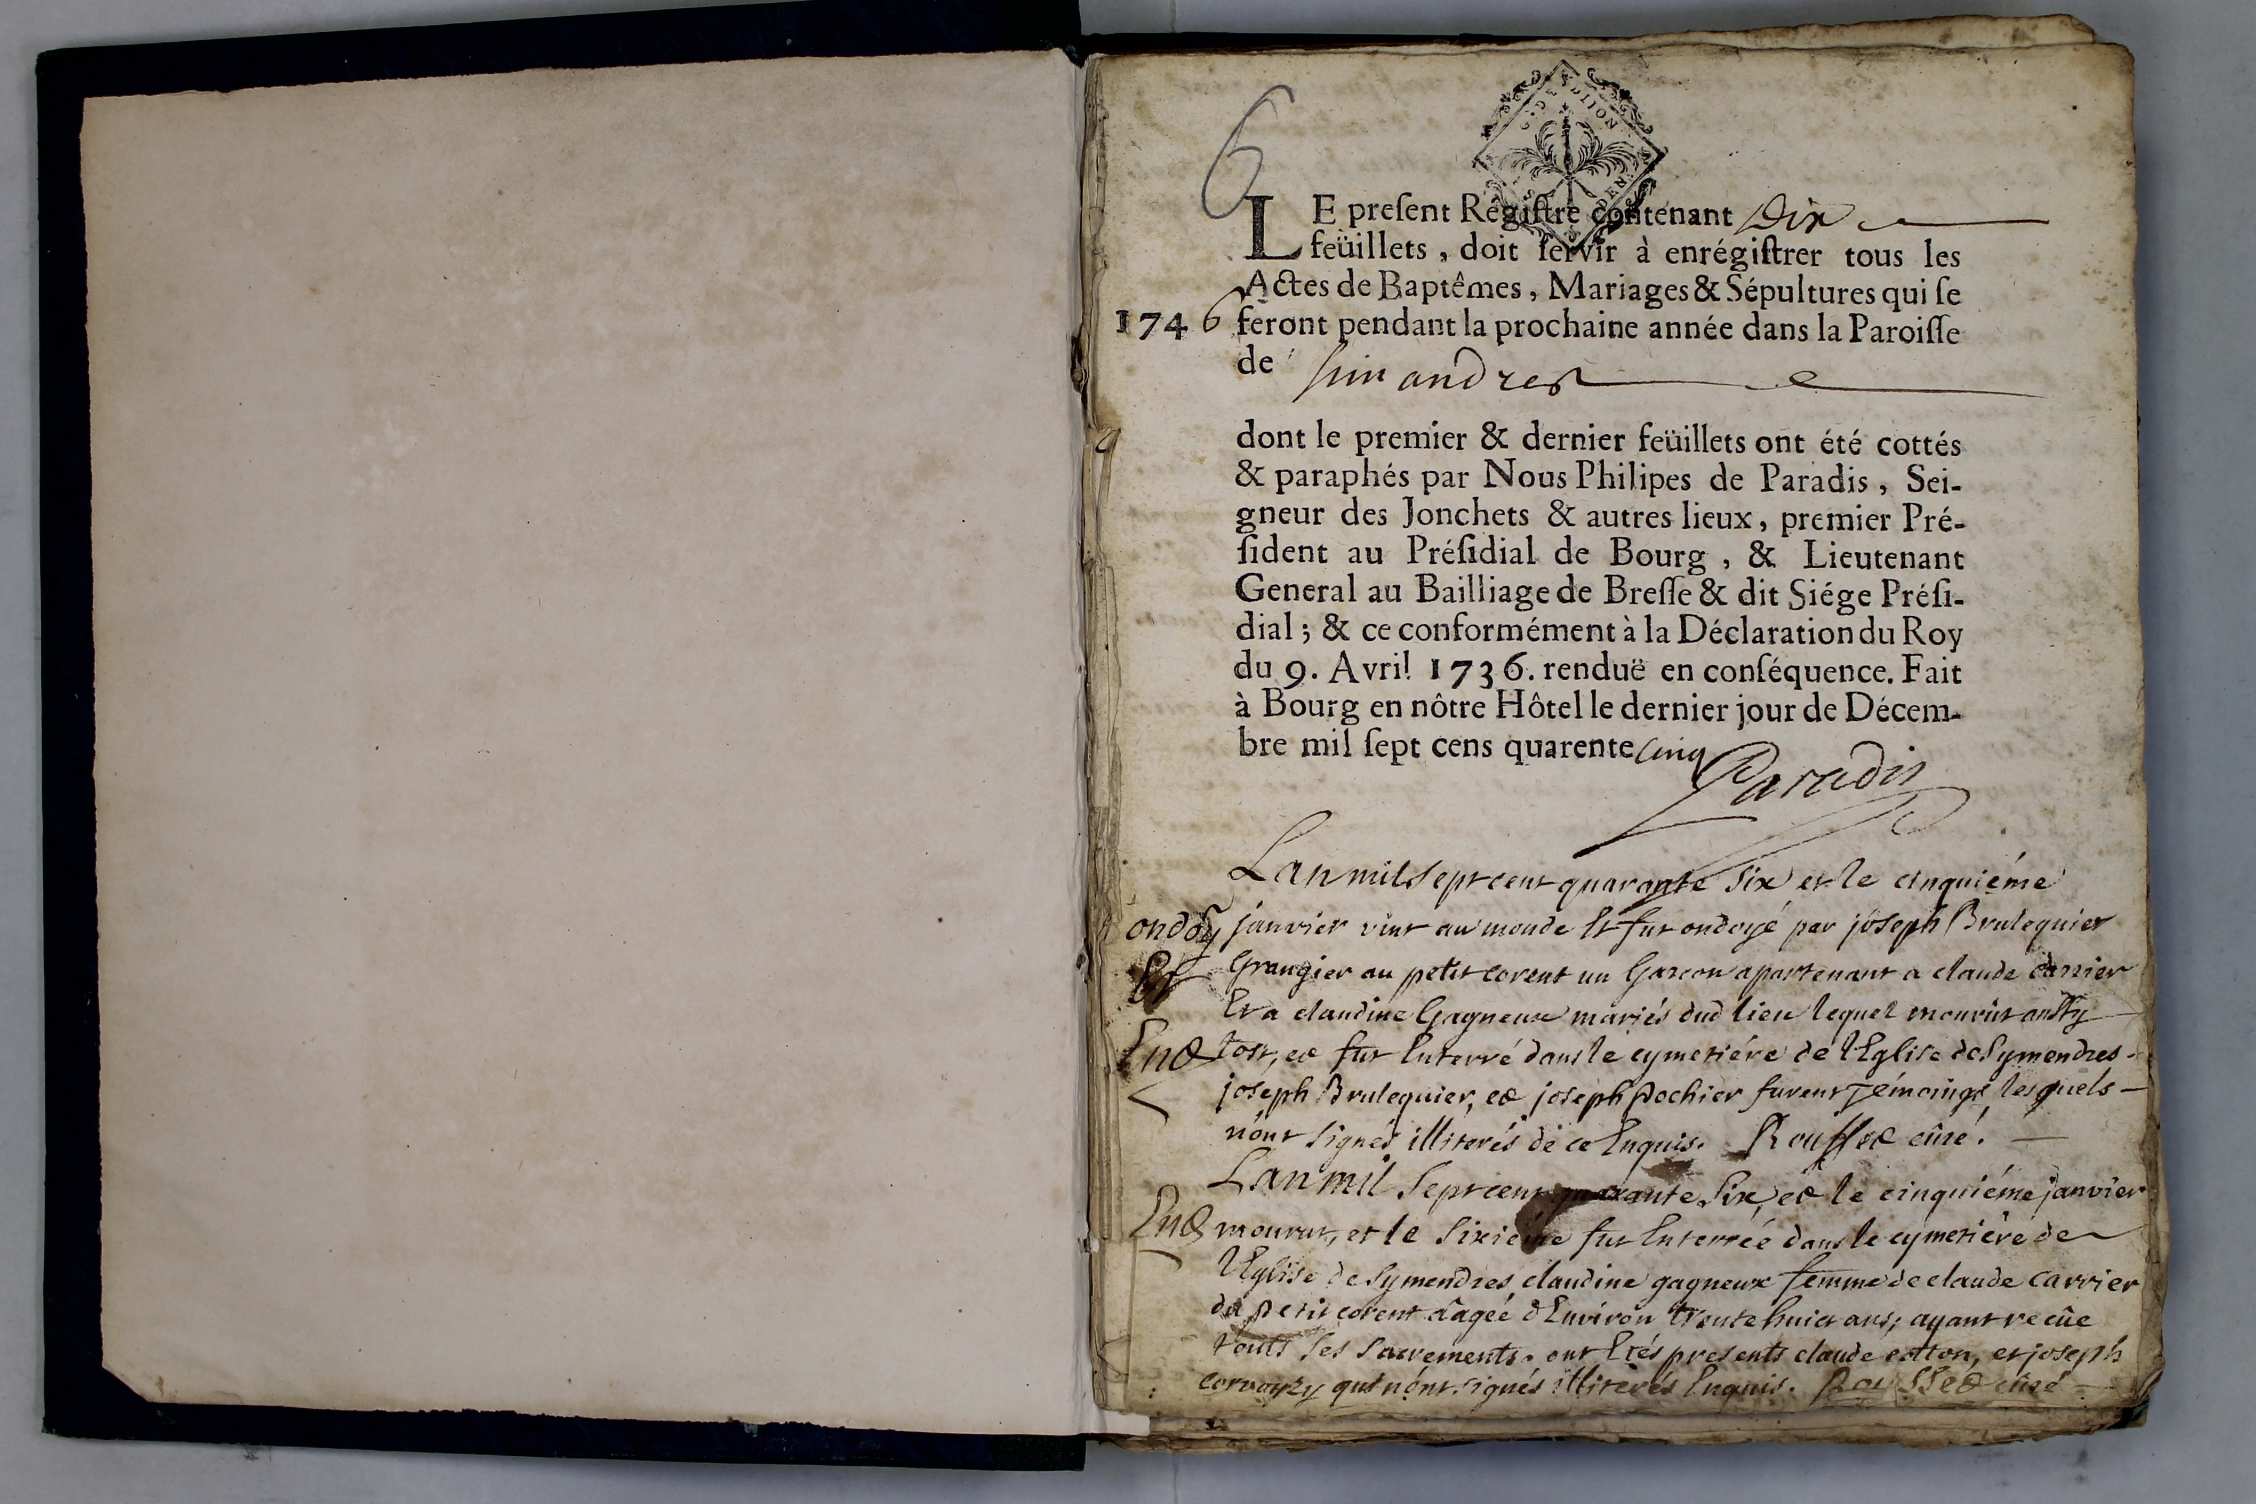 6
GE. DE DIJON
LE preſent Régiſtre contenant Dix
feüillets, doit ſervir à enrégiſtrer tous les
Actes de Baptêmes, Mariages & Sépultures qui ſe
1746 feront pendant la prochaine année dans la Paroiſſe
de Simandres
dont le premier & dernier feüillets ont été cottés
& paraphés par Nous Philipes de Paradis, Sei-
gneur des Jonchets & autres lieux, premier Pré-
ſident au Préſidial de Bourg, & Lieutenant
General au Bailliage de Breſſe & dit Siége Préſi-
dial; & ce conformément à la Déclaration du Roy
du 9. Avril 1736. renduë en conſéquence. Fait
à Bourg en nôtre Hôtel le dernier jour de Décem-
bre mil ſept cens quarente cinq
Paradis
Lan mil sept cent quarante six et le cinquiéme
ondoy janvier vint au monde Et fut ondoyé par joseph Brulequier
Et Grangier au petit corent un Garcon apartenant a claude carrier
Et a claudine Gagneux mariés dud lieu lequel mourut aussy
Ent tost, et fut Enterré dans le cymetiére de l'Eglise de Symendres
joseph Brulequier, et joseph Pochier furent Témoings lesquels
n'ont signés illiterés de ce Enquis. Rousset cûré.
Lan mil sept cent quarante six, et le cinquiéme janvier
Ent mourut, et le sixiéme fut Enterrée dans le cymetiére de
l'Eglise de Symendres claudine gagneux femme de claude carrier
du petit corent âagée d'Environ trente huict ans, ayant recûe
touts ses sacrements. ont Etés presents claude cotton, et joseph
qui n'ont signés illiterés Enquis. Rousset cûré